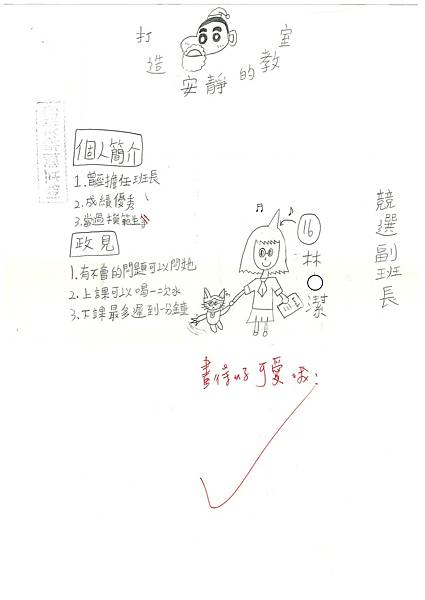 打造安靜的教室
競選副班長
個人簡介
1.曾經擔任班長
2.成績優秀
3.當過模範生
政見
1.有不會的問題可以問她
2.上課可以喝一次水
3.下課最多遲到一分鐘
16
林○潔
畫得好可愛哦!